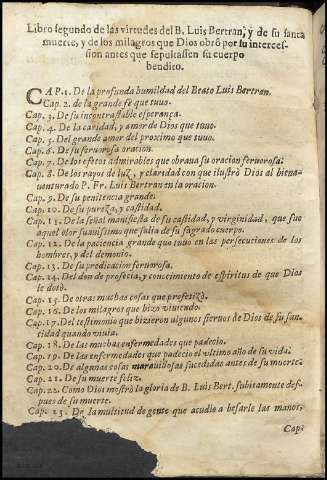 Libro segundo de las virtudes del B. Luis Bertran, y de su santa
muerte, y de los milagros que Dios obrò por su interces-
sion antes que sepultassen su cuerpo
bendito.
CAP. 1. De la profunda humildad del Beato Luis Bertran.
Cap. 2. de la grande fè que tuuo.
Cap. 3. De su incontrastable esperança.
Cap. 4. De la caridad, y amor de Dios que tuuo.
Cap. 5. Del grande amor del proximo que tuuo.
Cap. 6. De su feruorosa oracion.
Cap. 7. De los efetos admirables que obraua su oracion feruorosa.
Cap. 8. De los rayos de luz, y claridad con que ilustrò Dios al biena-
uenturado P. Fr. Luis Bertran en la oracion.
Cap. 9. De su penitencia grande.
Cap. 10. De su pureza, y castidad.
Cap. 11. De la señal manifiesta de su castidad, y virginidad, que fue
aquel olor suauissimo que salia de su sagrado cuerpo.
Cap. 12. De la paciencia grande que tuuo en las persecuciones de los
hombres, y del demonio.
Cap. 13. De su predicacion feruorosa.
Cap. 14. Del don de profecia, y conocimiento de espiritus de que Dios
le dotò.
Cap. 15. De otras muchas cosas que profetizò.
Cap. 16. De los milagros que hizo viuiendo.
Cap. 17. Del testimonio que hizieron algunos sieruos de Dios de su san-
tidad quando viuia.
Cap. 18. De las muchas enfermedades que padecio.
Cap. 19. De las enfermedades que padecio el vltimo año de su vida.
Cap. 20. De algunas cosas marauillosas sucedidas antes de su muerte.
Cap. 21. De su muerte feliz.
Cap. 22. Como Dios mostrò la gloria de B. Luis Bert. subitamente des-
pues de su muerte.
Cap. 23. De la multitud de gente que acudio a besarle las manos,
Cap: